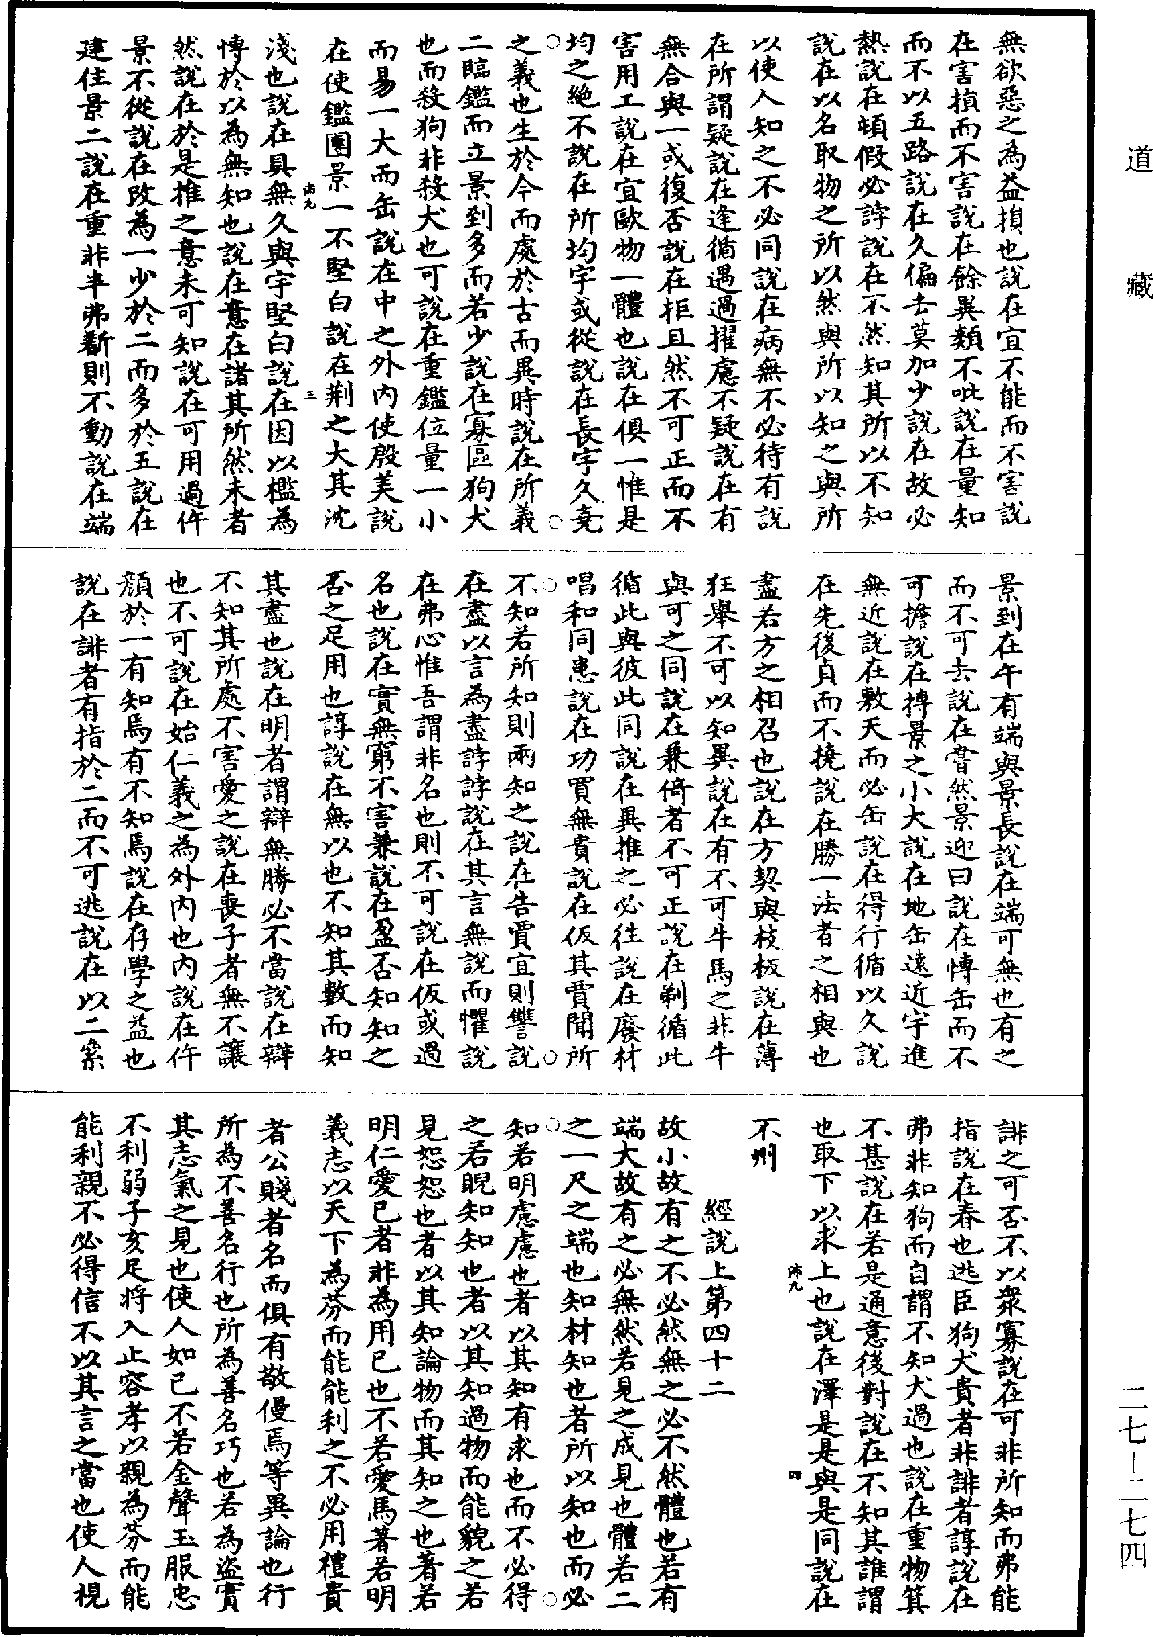 道藏
二七-二七四
無欲惡之為益損也說在宜不能而不害說
在害損而不害說在餘異類不吡說在量知
而不以五路說在久偏去莫加少說在故必
熱說在頓假必誖說在不然知其所以不知
說在以名取物之所以然與所以知之與所
以使人知之不必同說在病無不必待有說
在所謂疑說在逢循遇過擢慮不疑說在有
無合與一或復否說在拒且然不可正而不
害用工說在宜歐物一體也說在俱一惟是
均之絶不說在所均宇或從說在長宇久堯
之義也生於今而處於古而異時說在所義
二臨鑑而立景到多而若少說在寡區狗犬
也而殺狗非殺犬也可說在重鑑位量一小
而易一大而缶說在中之外內使殷美說
在使鑑團景一不堅白說在荆之大其沈
沛九
三
淺也說在具無久與宇堅白說在因以檻為
愽於以為無知也說在意在諸其所然未者
然說在於是推之意未可知說在可用過仵
景不從說在改為一少於二而多於五說在
建住景二說在重非半弗𣃈則不動說在端
景到在午有端與景長說在端可無也有之
而不可去說在嘗然景迎日說在愽缶而不
可擔說在摶景之小大說在地缶遠近宇進
無近說在敷天而必缶說在得行循以久說
在先後貞而不撓說在勝一法者之相與也
盡若方之相召也說在方契與枝板說在薄
狂舉不可以知異說在有不可牛馬之非牛
與可之同說在兼倚者不可正說在剃循此
循此與彼此同說在異推之必往說在廢材
唱和同患說在功買無貴說在仮其賈聞所
不知若所知則兩知之說在告賈宜則讐說
在盡以言為盡誖誖說在其言無說而懼說
在弗心惟吾謂非名也則不可說在仮或過
名也說在實無窮不害兼說在盈否知知之
否之足用也諄說在無以也不知其數而知
其盡也說在明者謂辯無勝必不當說在辯
不知其所處不害愛之說在喪子者無不讓
也不可說在始仁義之為外內也內說在仵
顏於一有知焉有不知焉說在存學之益也
說在誹者有指於二而不可逃說在以二絫
誹之可否不以衆寡說在可非所知而弗能
指說在春也逃臣狗犬貴者非誹者諄說在
弗非知狗而自謂不知犬過也說在重物箕
不甚說在若是通意後對說在不知其誰謂
也取下以求上也說在澤是是與是同說在
沛九
四
不州
經說上第四十二
故小故有之不必然無之必不然體也若有
端大故有之必無然若見之成見也體若二
之一尺之端也知材知也者所以知也而必
知若明慮慮也者以其知有求也而不必得
之若睨知知也者以其知過物而能貌之若
見恕恕也者以其知論物而其知之也著若
明仁愛己者非為用己也不若愛馬著若明
義志以天下為芬而能能利之不必用禮貴
者公賤者名而俱有敬僈焉等異論也行
所為不善名行也所為善名巧也若為盜實
其志氣之見也使人如己不若金聲玉服忠
不利弱子亥足將入止容孝以親為芬而能
能利親不必得信不以其言之當也使人視